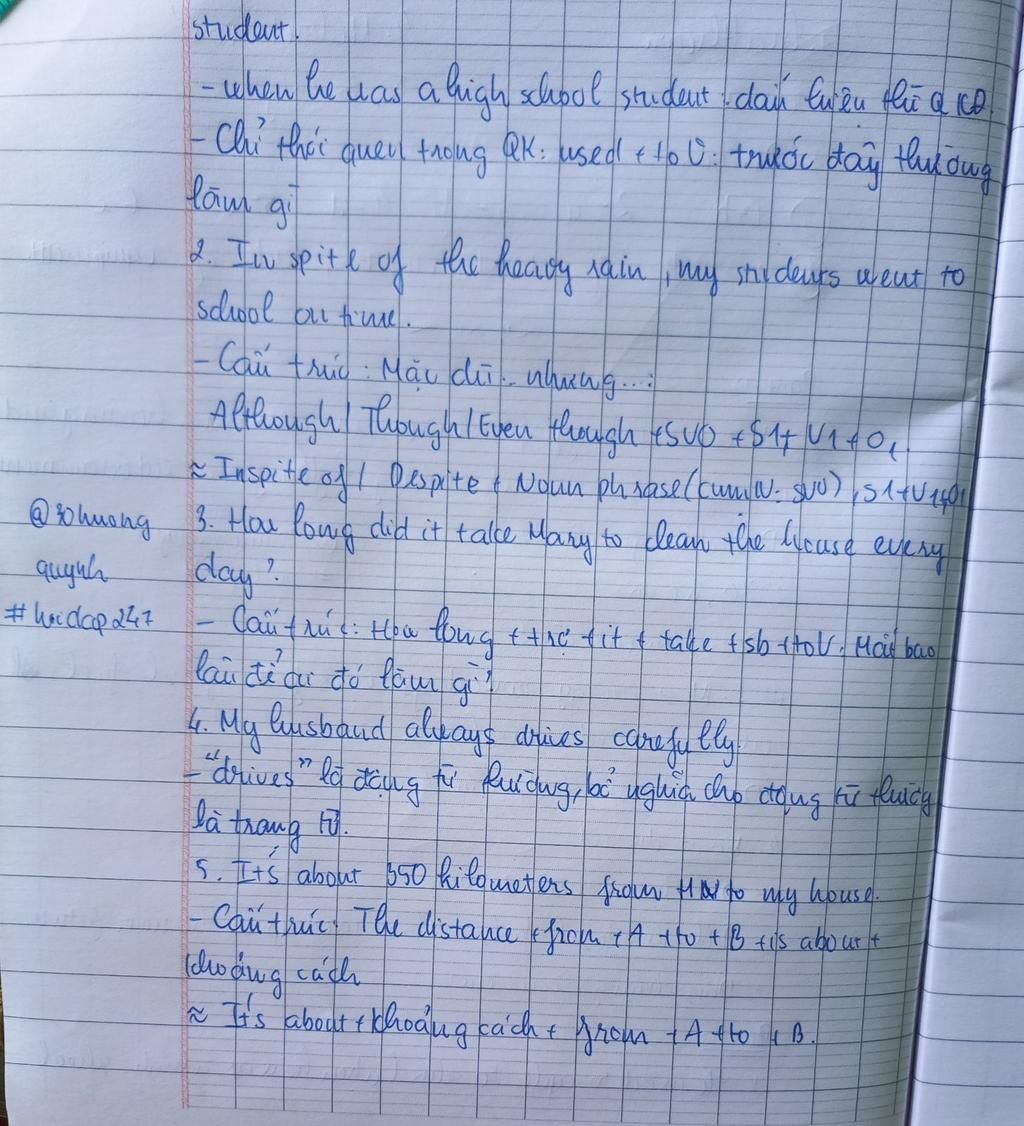 student.
- when he was a high school student: dấu hiệu thì QKĐ
- Chỉ thói quen trong QK: used + to V: trước đây thường
làm gì
2. In spite of the heavy rain, my students went to
school on time.
- Cấu trúc: Mặc dù... nhưng...:
Although/ Though/ Even though +SVO +S1+ V1+O1.
≈ Inspite of/ Despite + Noun phrase(cụm N: SVO), S1+V1+O1
3. How long did it take Mary to clean the house every
day?
- Cấu trúc: How long + trợ + it + take +sb +toV: Mất bao
lâu để ai đó làm gì?
4. My husband always drives carefully.
- "drives" là động từ thường, bổ nghĩa cho động từ thường
là trạng từ.
5. It's about 350 kilometers from HN to my house.
- Cấu trúc: The distance +from +A +to +B +is about+
khoảng cách
≈ It's about+khoảng cách+ from +A +to +B.
@Khuong
quynh
#hoidap247